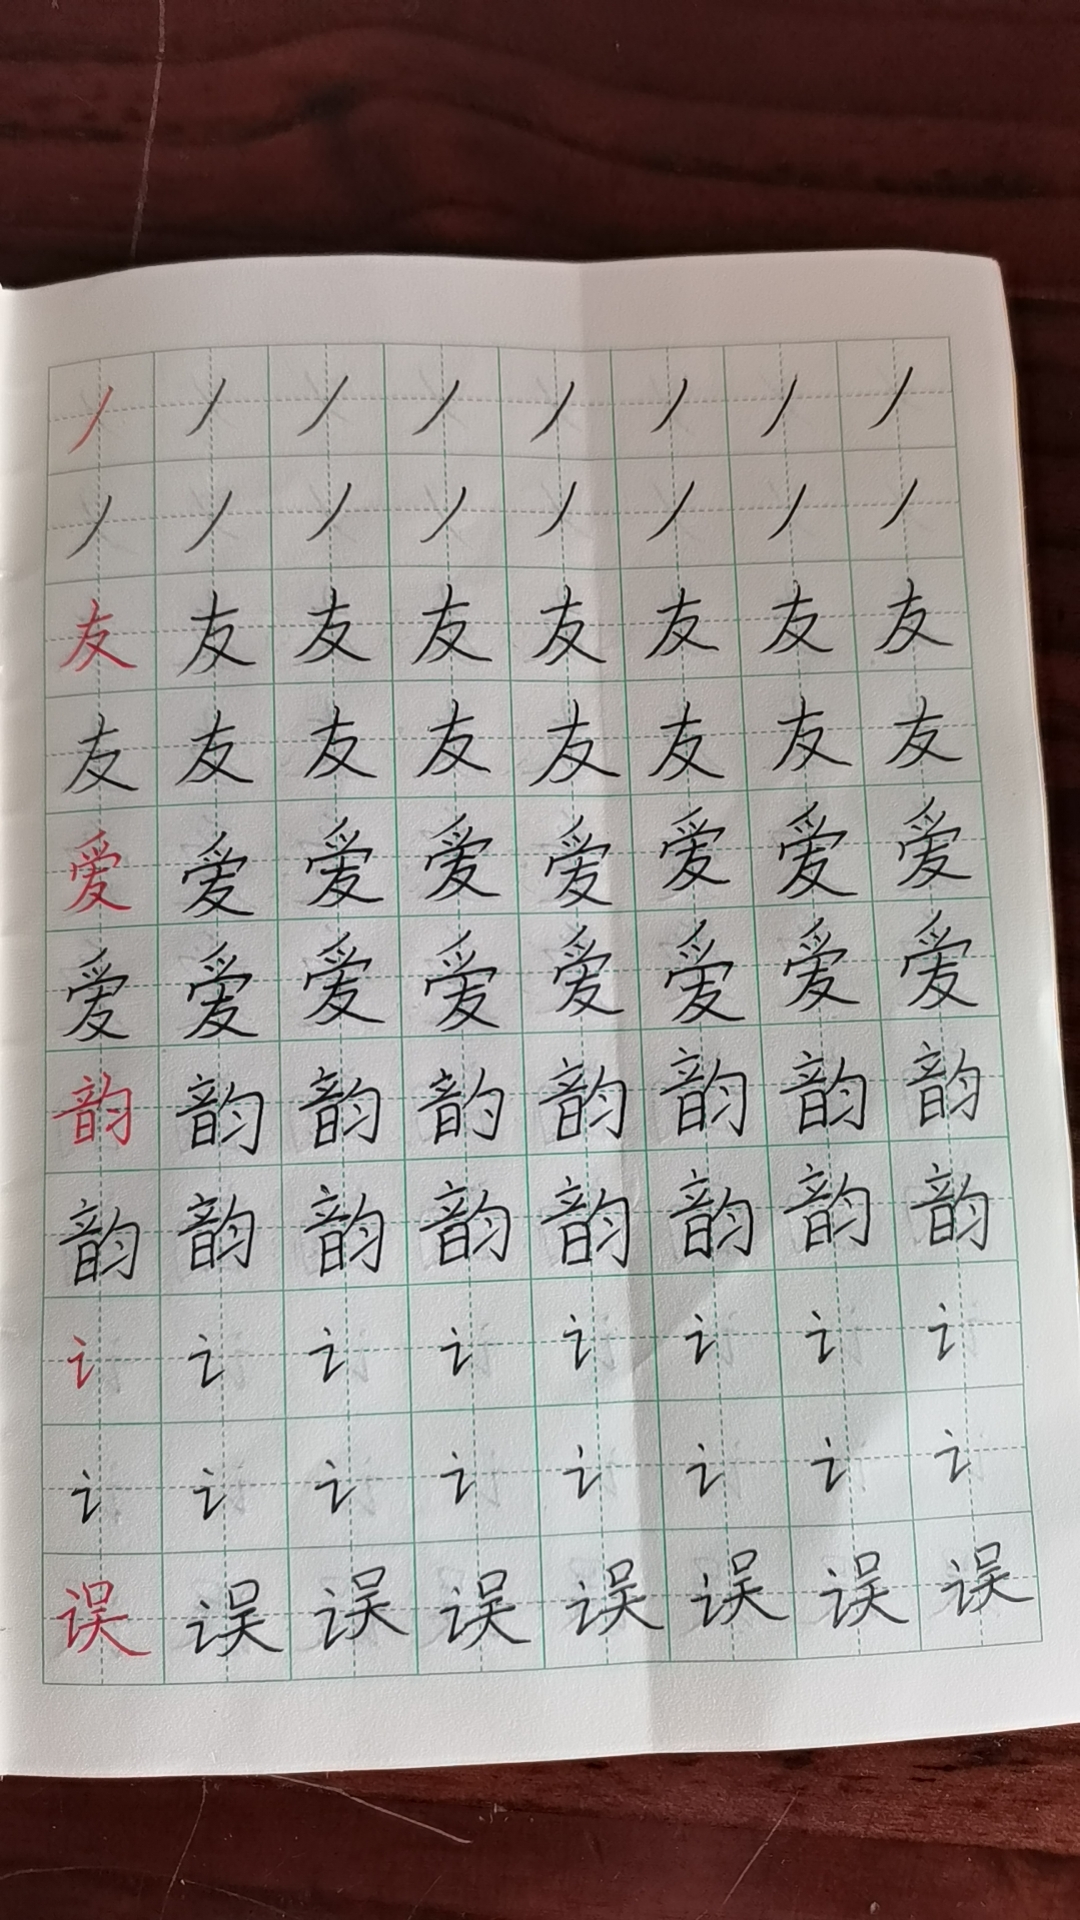 丿 丿 丿 丿 丿 丿 丿 丿
丿 丿 丿 丿 丿 丿 丿 丿
友 友 友 友 友 友 友 友
友 友 友 友 友 友 友 友
爱 爱 爱 爱 爱 爱 爱 爱
爱 爱 爱 爱 爱 爱 爱 爱
韵 韵 韵 韵 韵 韵 韵 韵
韵 韵 韵 韵 韵 韵 韵 韵
讠 讠 讠 讠 讠 讠 讠 讠
讠 讠 讠 讠 讠 讠 讠 讠
误 误 误 误 误 误 误 误